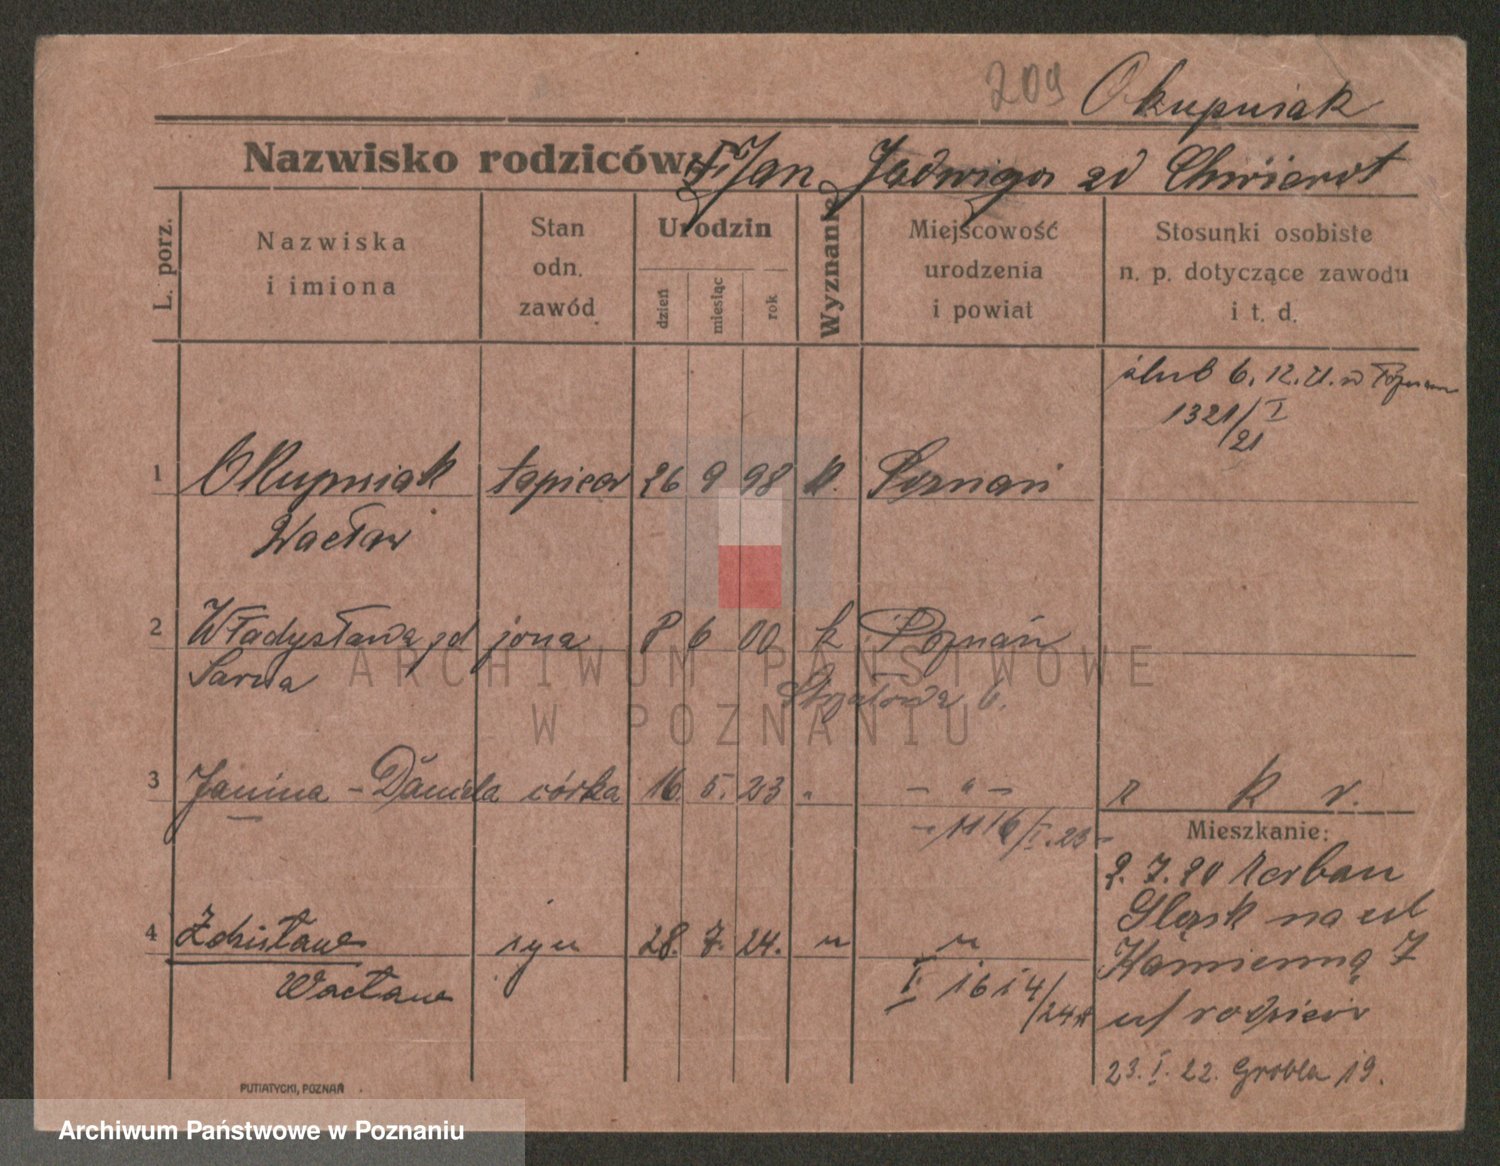 209 Okupniak
Nazwisko rodziców: Jan Jadwiga zd
L. porz.
Nazwiska
i imiona
Stan
odn.
zawód
Urodzin
dzień
miesiąc
rok
Wyznanie
Miejscowość
urodzenia
i powiat
Stosunki osobiste
n. p. dotyczące zawodu
i t. d.
ślub 6. 12. 21. w Poznaniu
1321/I
21
1 Okupniak tapicer 26 9 98 k. Poznań
Wacław
2 Władysława zd żona 8 6 00 k Poznań
Sarna
6.
3 Janina - Daniela córka 16. 5. 23 " - " -
1116/I.23
r k v.
Mieszkanie:
2. 7. 20
na ul
Kamienną 7
u/ rodziców
23. I. 22. Grobla 19.
4 Zdzisław syn 28. 7. 24. " "
Wacław
I 1614/24
PUTIATYCKI, POZNAŃ
ARCHIWUM PAŃSTWOWE
W POZNANIU
Archiwum Państwowe w Poznaniu